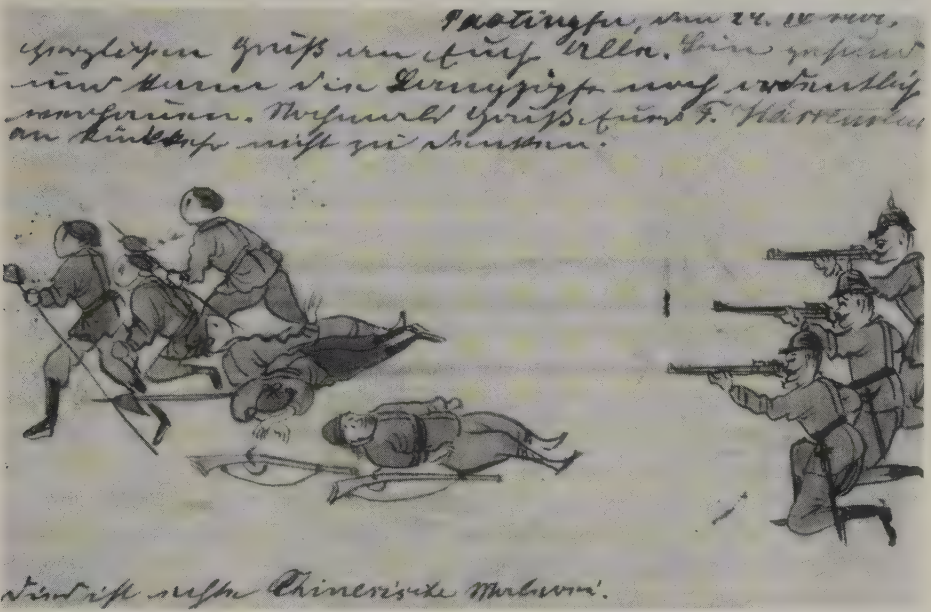 Paotingfu, den 24. IV
Herzlichen Gruß an Euch Alle. Bin gesund
und kann die Langzöpfe noch ordentlich
verhauen. Nochmals Gruß Euer F.
an Rückkehr nicht zu denken.
Dies ist echte Chinesische Malerei.